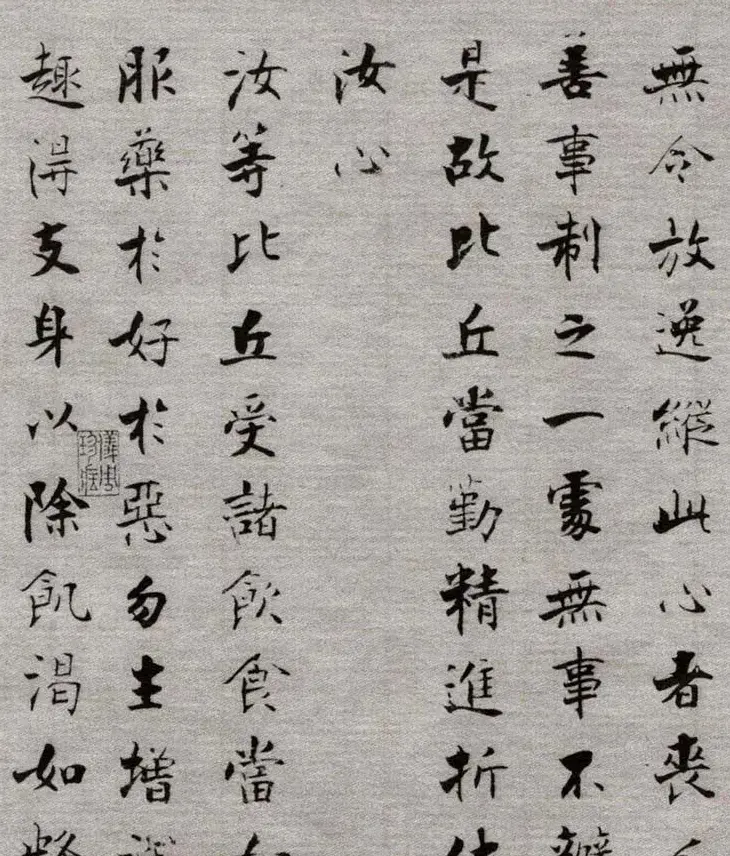 無令放逸縱此心者喪
善事制之一處無事不
是故比丘當勤精進折
汝心
汝等比丘受諸飲食當
服藥於好於惡勿生增
趣得支身以除飢渴如